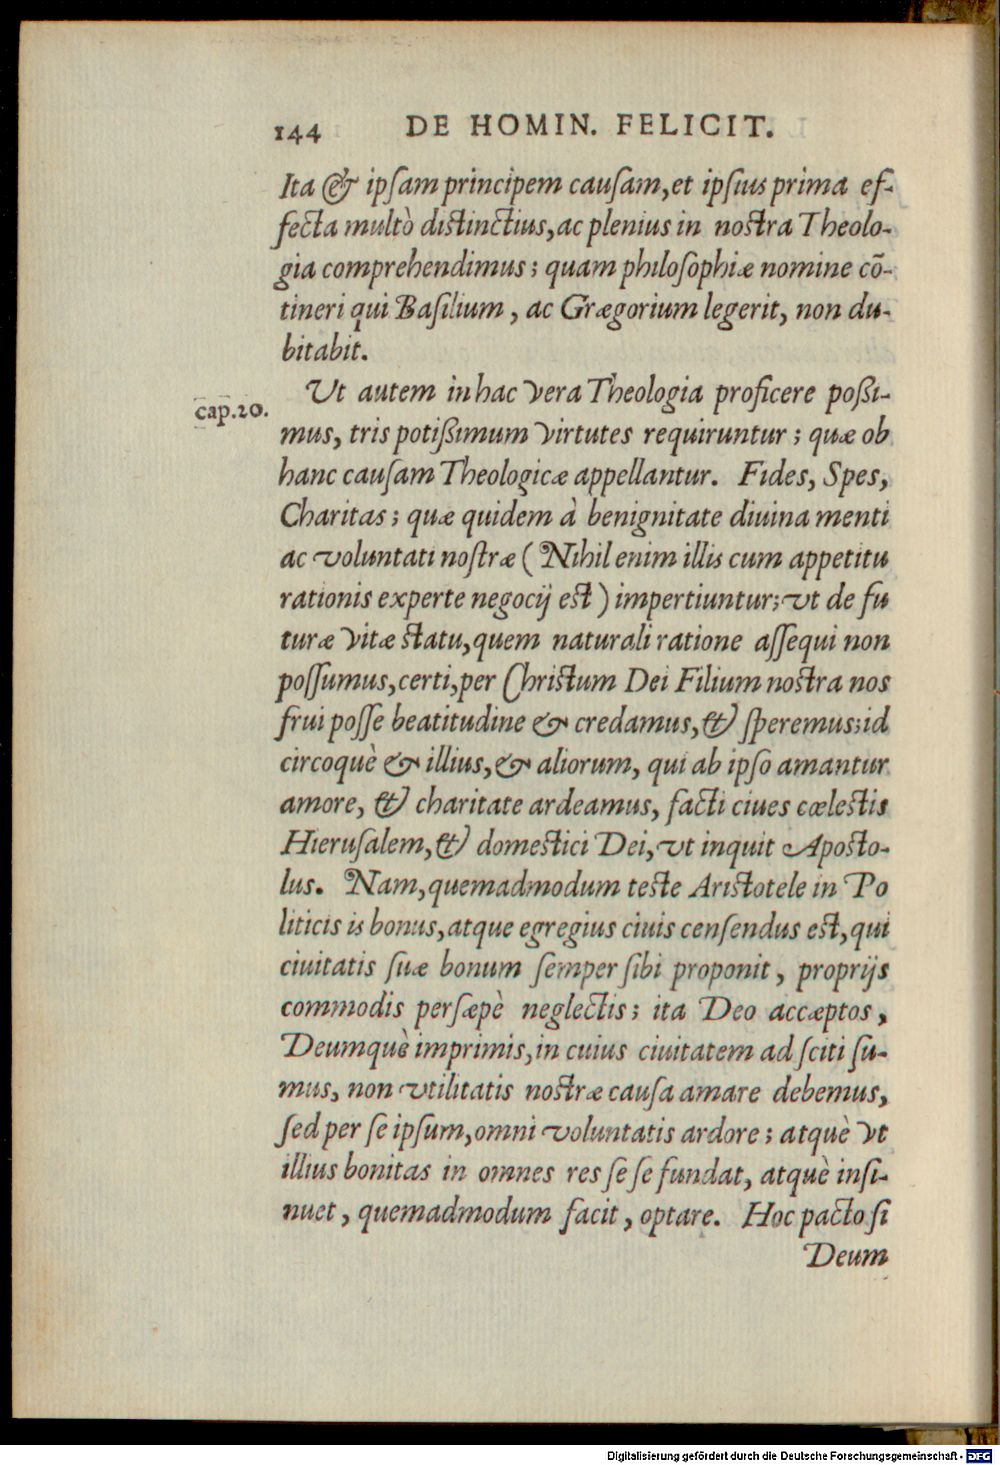 144 DE HOMIN. FELICIT.
Ita & ipſam principem cauſam, et ipſius prima ef-
fecta multò distinctius, ac plenius in nostra Theolo-
gia comprehendimus; quam philoſophiæ nomine cō-
tineri qui Baſilium, ac Grægorium legerit, non du-
bitabit.
cap.20.
Ut autem in hac vera Theologia proficere poßi-
mus, tris potißimum virtutes requiruntur; quæ ob
hanc cauſam Theologicæ appellantur. Fides, Spes,
Charitas; quæ quidem à benignitate diuina menti
ac voluntati noſtræ (Nihil enim illis cum appetitu
rationis experte negocij est) impertiuntur; vt de fu
turæ vitæ statu, quem naturali ratione aſſequi non
poſſumus, certi, per Christum Dei Filium nostra nos
frui poſſe beatitudine & credamus, & ſperemus; id
circoquè & illius, & aliorum, qui ab ipſo amantur
amore, & charitate ardeamus, facti ciues cœlestis
Hieruſalem, & domestici Dei, vt inquit Aposto-
lus. Nam, quemadmodum teste Aristotele in Po
liticis is bonus, atque egregius ciuis cenſendus est, qui
ciuitatis ſuæ bonum ſemper ſibi proponit, proprijs
commodis perſæpè neglectis; ita Deo accæptos,
Deumquè imprimis, in cuius ciuitatem ad ſciti ſu-
mus, non vtilitatis nostræ cauſa amare debemus,
ſed per ſe ipſum, omni voluntatis ardore; atquè vt
illius bonitas in omnes res ſe ſe fundat, atquè inſi-
nuet, quemadmodum facit, optare. Hoc pacto ſi
Deum
Digitalisierung gefördert durch die Deutsche Forschungsgemeinschaft - DFG